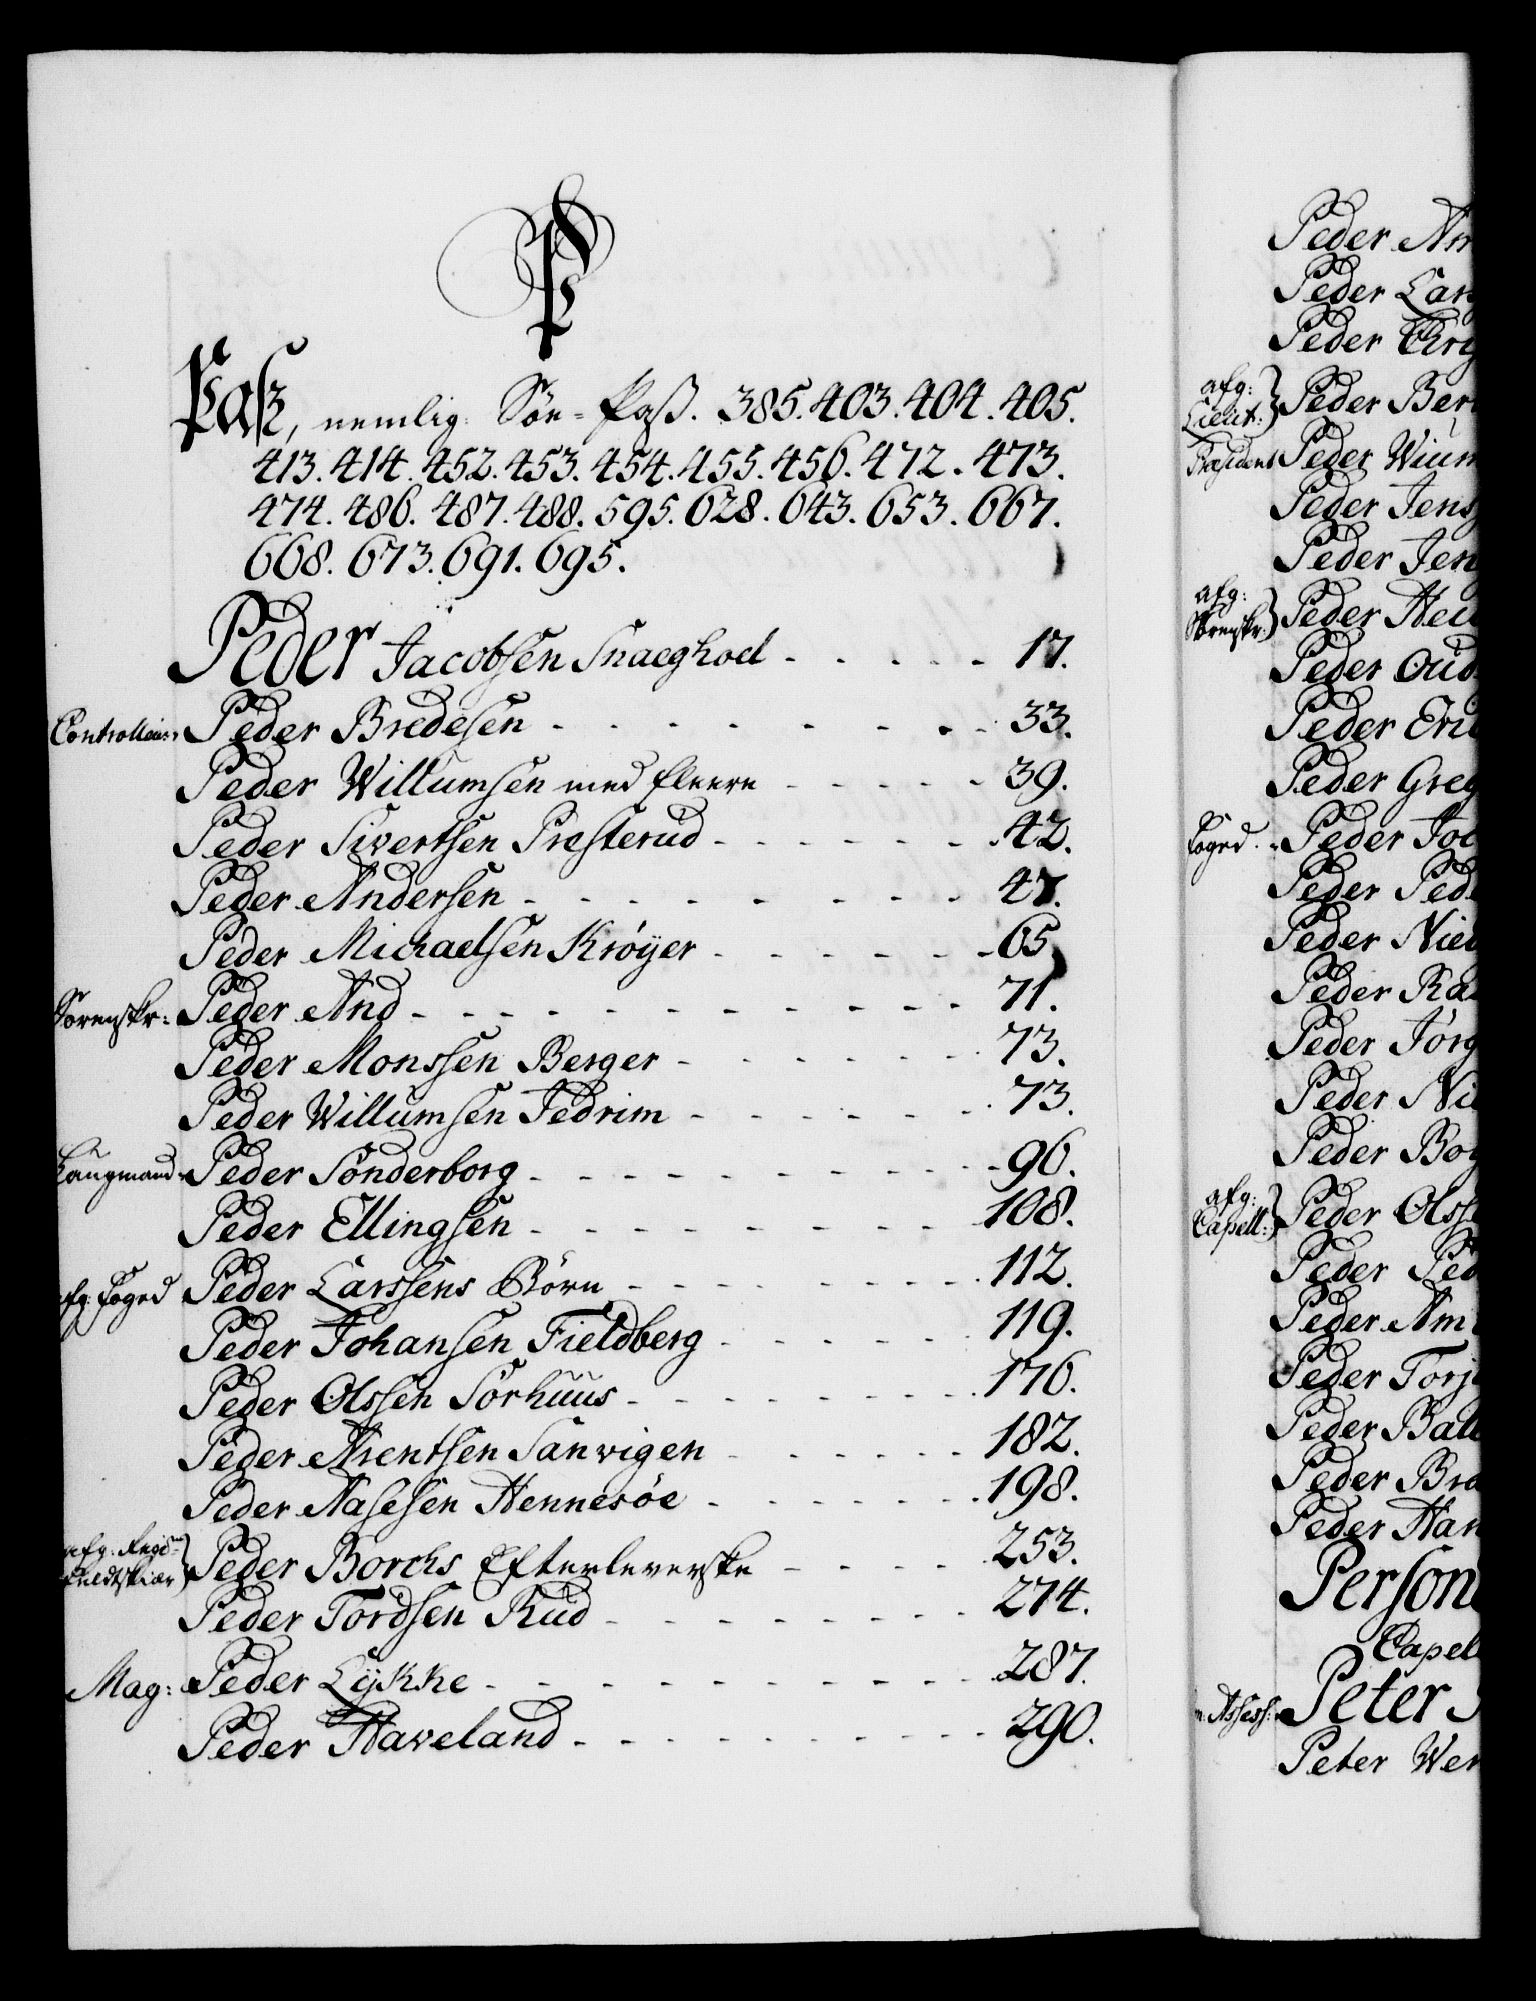 P
Pasz, nemlig: Söe-Pasz. 385. 403. 404. 405.
413. 414. 452. 453. 454. 455. 456. 472. 473.
474. 486. 487. 488. 595. 628. 643. 653. 667.
668. 673. 691. 695.
Peder Jacobsen Snaeghoel - - - - - 17.
Controlleur Peder Bredesen - - - - - - - - 33.
Peder Willumsen med fleere - - - - - 39.
Peder Sivertsen Presterud - - - - - - 42.
Peder Andersen - - - - - - - - - 47.
Peder Michaelsen Kröyer - - - - - - 65.
Sorenskr: Peder And - - - - - - - - - - - 71.
Peder Monssen Berger - - - - - - - 73.
Peder Willumsen Fedrim - - - - - - - 73.
Laugmand Peder Sönderborg - - - - - - - - - 96.
Peder Ellingsen - - - - - - - - - 108.
afg: Foged Peder Larssens Börn - - - - - - - - 112.
Peder Johansen Fieldberg - - - - - - 119.
Peder Olssen Sörhuus - - - - - - - - 176.
Peder Arentsen Sanvigen - - - - - - 182.
Peder Aasesen Hennesöe - - - - - - - 198.
afg: Reg:
Feldtskiær } Peder Borchs Efterleverske - - - - 253.
Peder Tordsen Rud - - - - - - - - - 274.
Mag: Peder Lykke - - - - - - - - - - - 287.
Peder Haveland - - - - - - - - - - 290.
Peder
Peder Lars
Peder
afg:
Lieut: } Peder Ber
Præsident Peder Wium
Peder Jens
Peder Jen
afg:
Sorenskr: } Peder
Peder Oud
Peder Eri
Peder Greg
Foged - Peder
Peder Ped
Peder Niel
Peder Ra
Peder Jörg
Peder Ni
Peder Boy
afg:
Capell: } Peder Olss
Peder Ped
Peder Am
Peder Torj
Peder Ball
Peder Bra
Peder Han
Person
Capel
Assess: Peter
Peter Wer